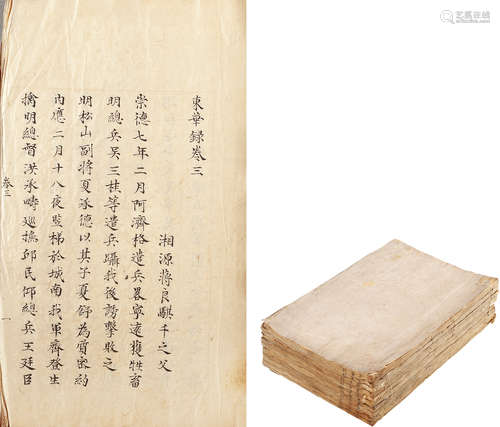 東華錄卷三
湘源蔣良騏千之父
崇德七年二月阿濟格遣兵畧寧遠獲牲畜
明總兵吴三桂等遣兵躡我後誘擊敗之
明松山副將夏承德以其子夏舒為質密約
内應二月十八夜豎梯於城南我軍齊登生
擒明總督洪承疇廵撫邱民仰總兵王廷臣
卷三
一